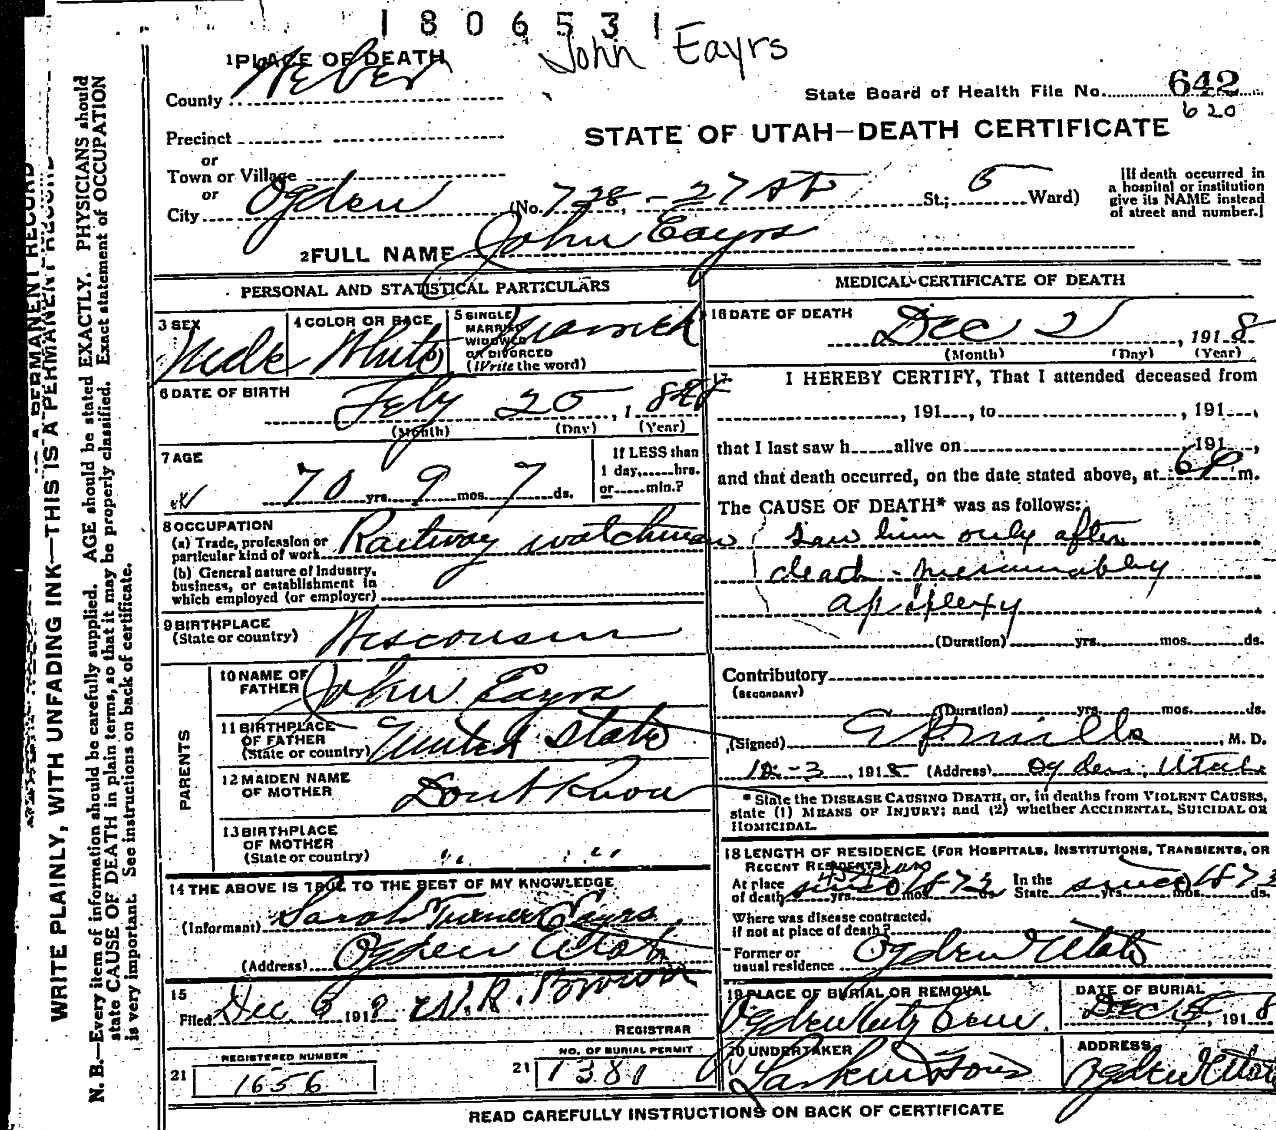 1806531
John Eayrs
1 PLACE OF DEATH
County Weber
State Board of Health File No. 642
620
Precinct
STATE OF UTAH—DEATH CERTIFICATE
or
Town or Village
or
City Ogden (No. 728 - 27 St St.; 5 Ward)
[If death occurred in
a hospital or institution
give its NAME instead
of street and number.]
2 FULL NAME John Eayrs
PERSONAL AND STATISTICAL PARTICULARS
3 SEX
Male
4 COLOR OR RACE
White
5 SINGLE
MARRIED
WIDOWED
OR DIVORCED
(Write the word)
Married
6 DATE OF BIRTH
Feby 25, 1848
(Month) (Day) (Year)
7 AGE
70 yrs. 9 mos. 7 ds.
If LESS than
1 day,......hrs.
or......min.?
8 OCCUPATION
(a) Trade, profession or
particular kind of work Railway watchman
(b) General nature of industry,
business, or establishment in
which employed (or employer)
9 BIRTHPLACE
(State or country) Wisconsin
PARENTS
10 NAME OF
FATHER John Eayrs
11 BIRTHPLACE
OF FATHER
(State or country) United States
12 MAIDEN NAME
OF MOTHER Dont Know
13 BIRTHPLACE
OF MOTHER
(State or country) " "
14 THE ABOVE IS TRUE TO THE BEST OF MY KNOWLEDGE
(Informant) Sarah Turner Eayrs
(Address) Ogden Utah
15
Filed Dec 6 1918 W.R. Brown
REGISTRAR
REGISTERED NUMBER
21 1656
NO. OF BURIAL PERMIT
21 1381
MEDICAL CERTIFICATE OF DEATH
16 DATE OF DEATH
Dec 2, 1918
(Month) (Day) (Year)
17 I HEREBY CERTIFY, That I attended deceased from
, 191..., to , 191...,
that I last saw h......alive on , 191...,
and that death occurred, on the date stated above, at 6 P m.
The CAUSE OF DEATH* was as follows:
Saw him only after
death - presumably
apoplexy
(Duration) yrs. mos. ds.
Contributory
(SECONDARY)
(Duration) yrs. mos. ds.
(Signed) E P Mills, M. D.
12-3, 1918 (Address) Ogden, Utah
* State the DISEASE CAUSING DEATH, or, in deaths from VIOLENT CAUSES,
state (1) MEANS OF INJURY; and (2) whether ACCIDENTAL, SUICIDAL OR
HOMICIDAL.
18 LENGTH OF RESIDENCE (FOR HOSPITALS, INSTITUTIONS, TRANSIENTS, OR
RECENT RESIDENTS)
At place
of death since 1873 yrs. mos. ds. In the
State since 1873 yrs. mos. ds.
Where was disease contracted,
if not at place of death?
Former or
usual residence Ogden Utah
19 PLACE OF BURIAL OR REMOVAL
Ogden City Cem.
DATE OF BURIAL
Dec 5, 1918
20 UNDERTAKER
Larkin & Sons
ADDRESS
Ogden Utah
READ CAREFULLY INSTRUCTIONS ON BACK OF CERTIFICATE
WRITE PLAINLY, WITH UNFADING INK—THIS IS A PERMANENT RECORD
N. B.—Every item of information should be carefully supplied. AGE should be stated EXACTLY. PHYSICIANS should
state CAUSE OF DEATH in plain terms, so that it may be properly classified. Exact statement of OCCUPATION
is very important. See instructions on back of certificate.